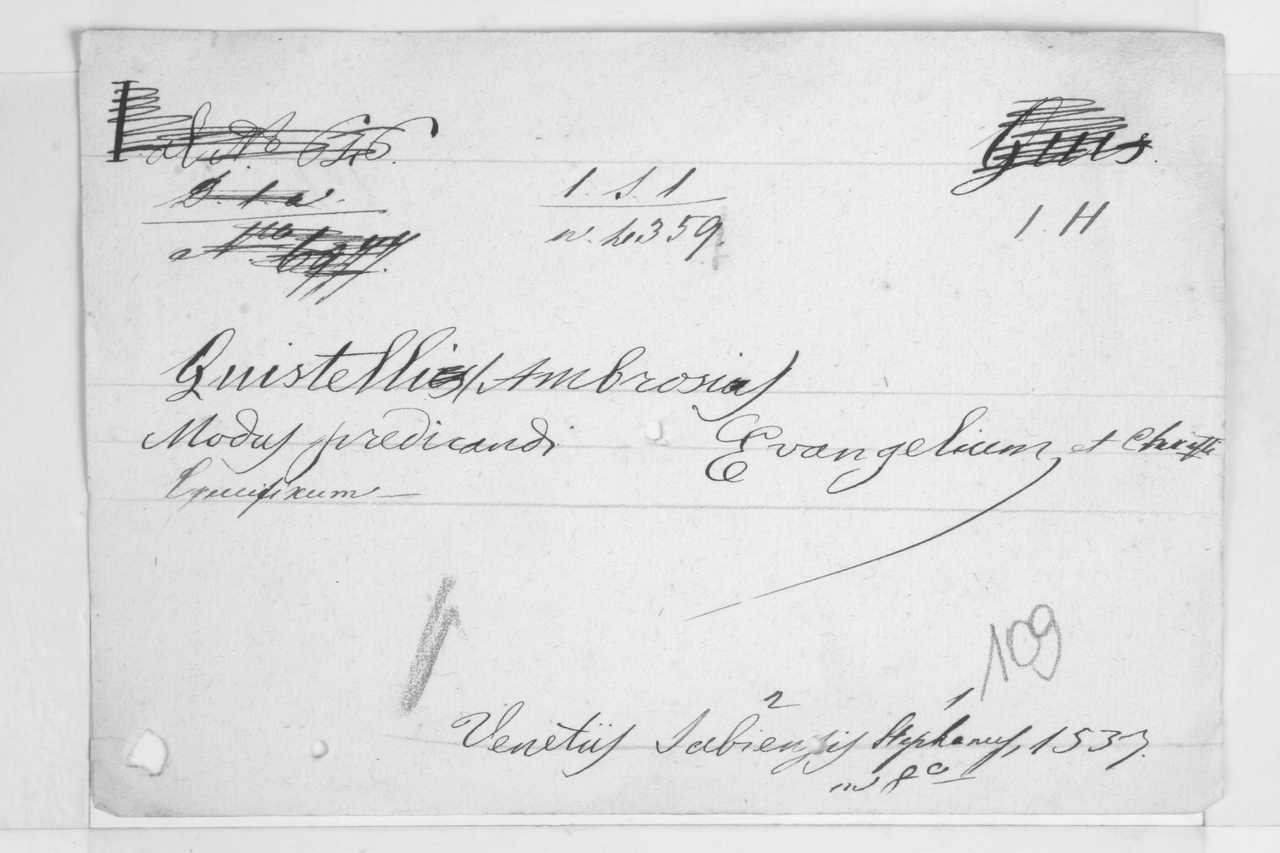 al. No 646.
D. 1. a.
1. S. 1
n. 359.
1. H
Quistelli (Ambrosius)
Modus predicandi Evangelium et Christi
Crucifixum —
109
2 1
Venetiis Sabiensis Stephanus, 1537.
in 8o